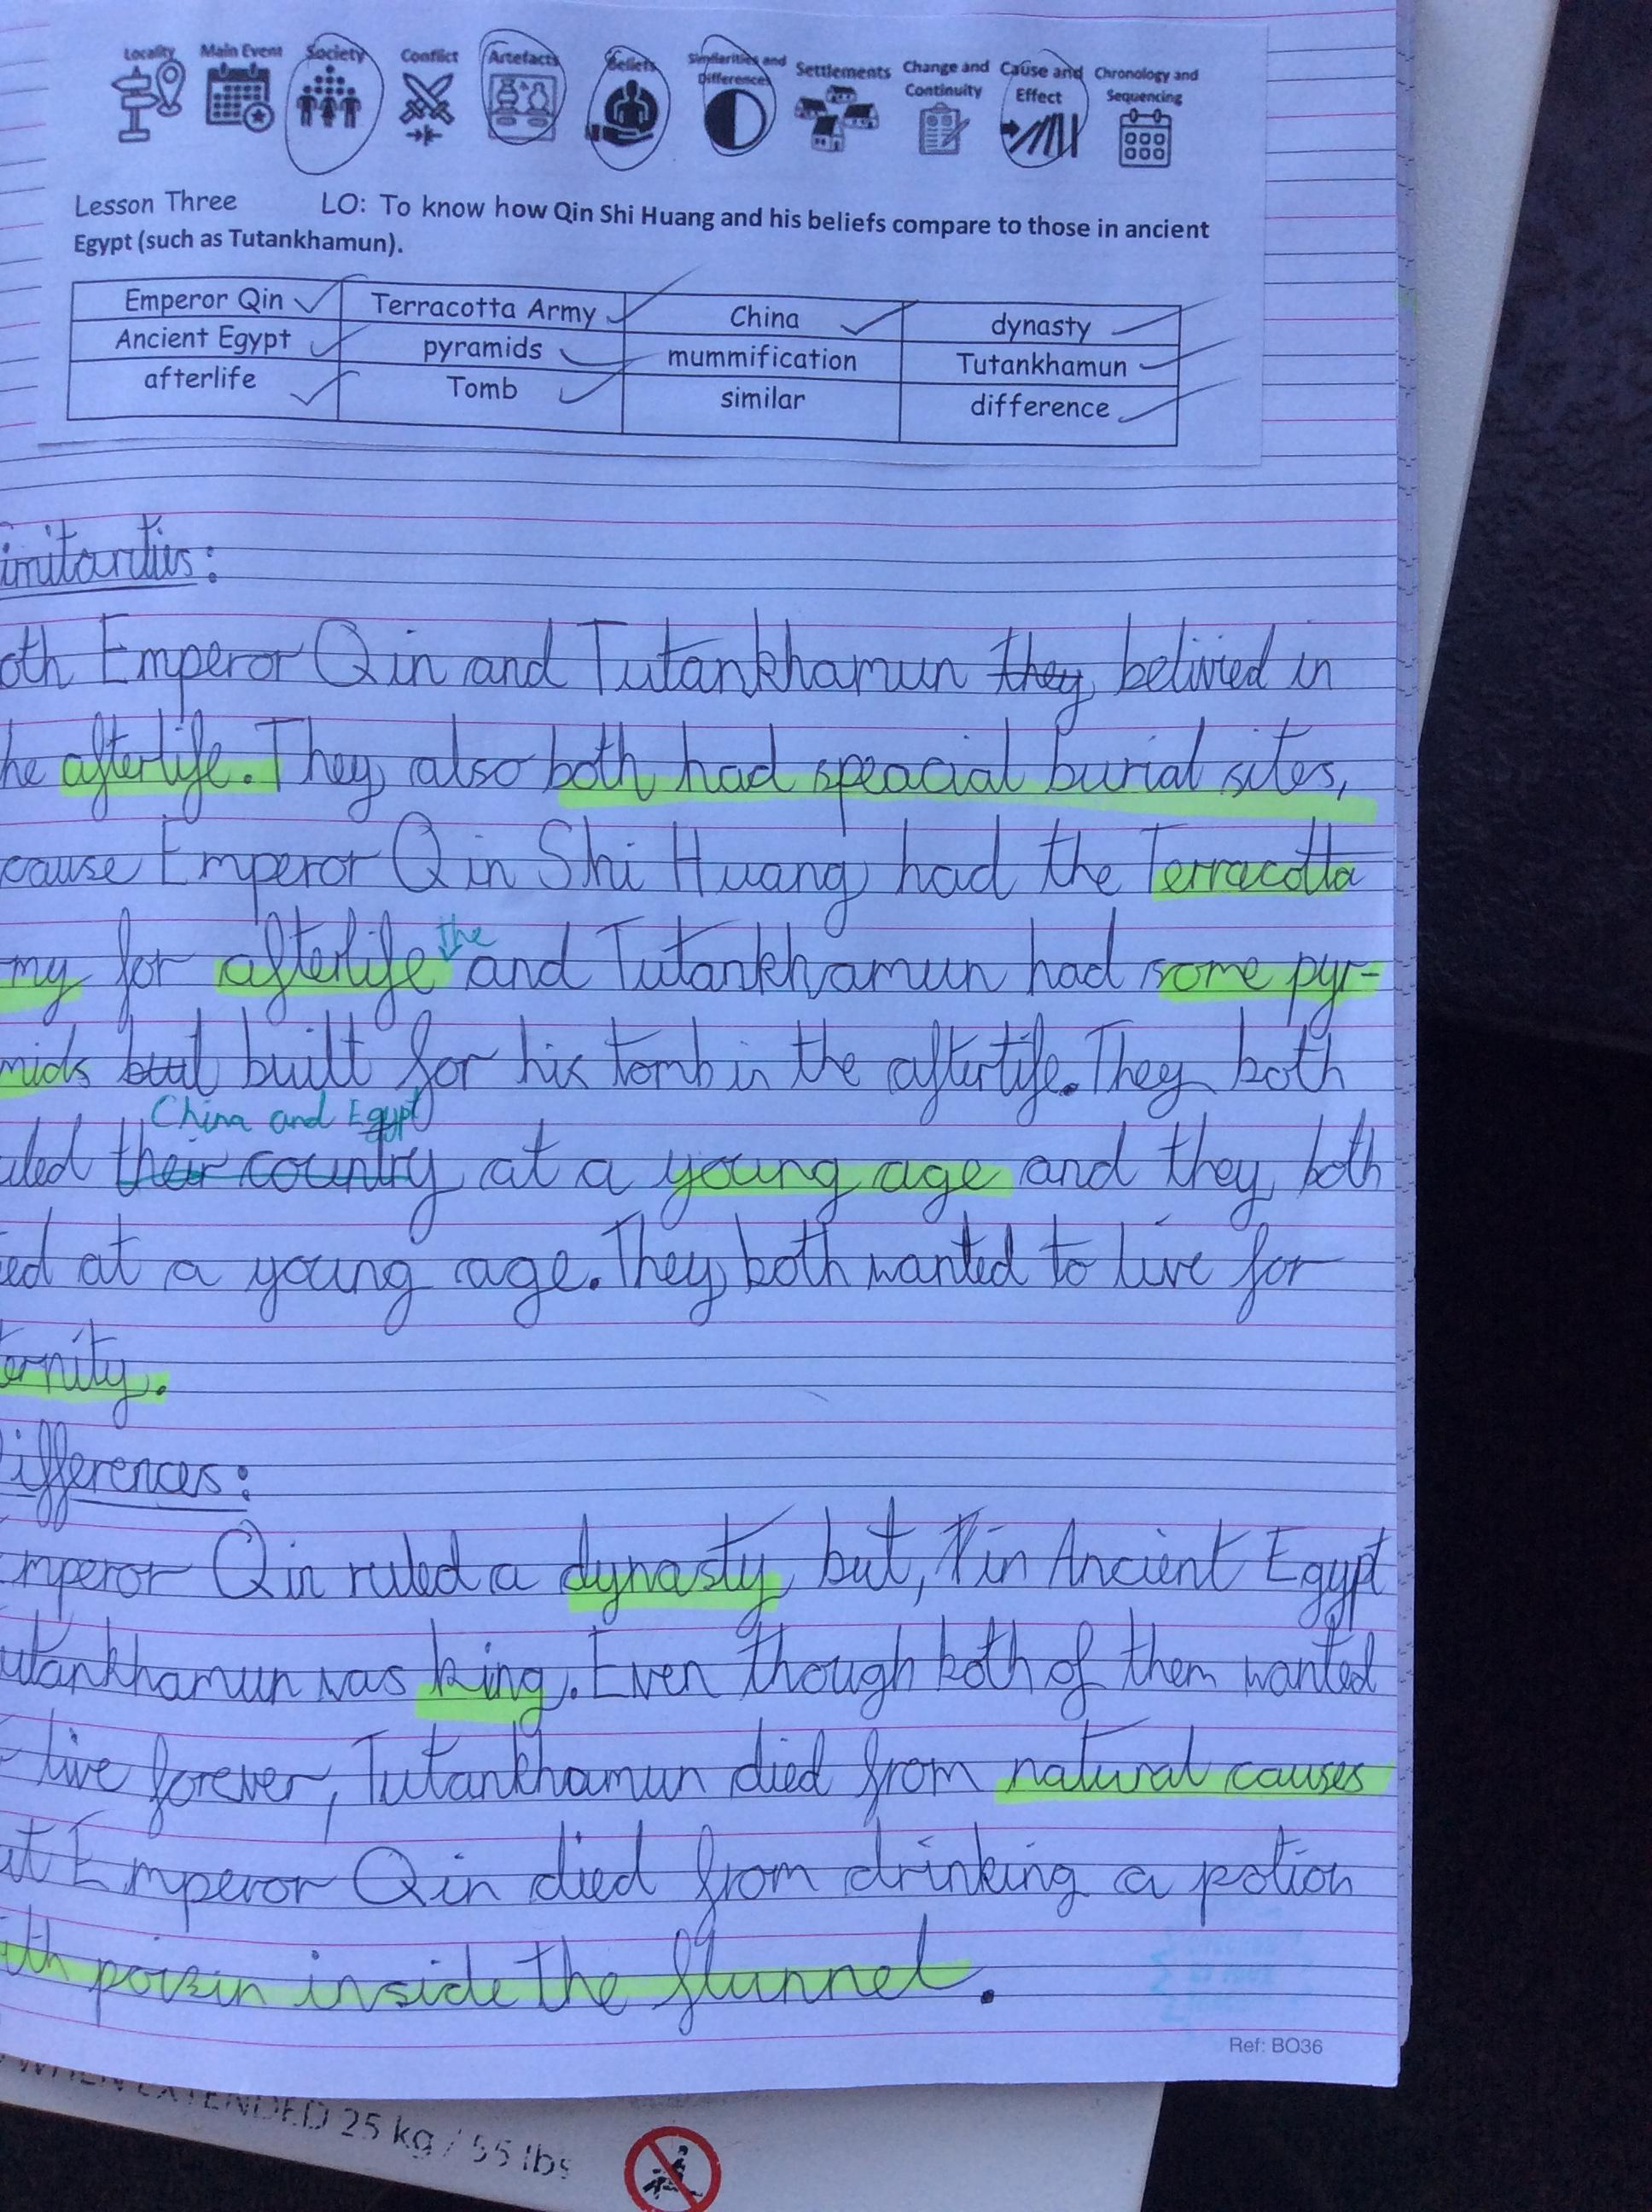 Locality Main Event Society Conflict Artefacts Beliefs Similarities and Differences Settlements Change and Continuity Cause and Effect Chronology and Sequencing
Lesson Three LO: To know how Qin Shi Huang and his beliefs compare to those in ancient
Egypt (such as Tutankhamun).
Emperor Qin Terracotta Army China dynasty
Ancient Egypt pyramids mummification Tutankhamun
afterlife Tomb similar difference
imilarities:
oth Emperor Qin and Tutankhamun they belivied in
he afterlife. They also both had speacial burial sites,
cause Emperor Qin Shi Huang had the Terracotta
my for afterlife the and Tutankhamun had some pyr-
mids built for his tomb in the afterlife. They both
China and Egypt
uled their country at a young age and they both
ed at a young age. They both wanted to live for
ernity.
ifferences:
mperor Qin ruled a dynasty but, in Ancient Egypt
utankhamun was king. Even though both of them wanted
live forever, Tutankhamun died from natural causes
ut Emperor Qin died from drinking a potion
ith poizin inside the flunnel.
Ref: BO36
WHEN EXTENDED 25 kg / 55 lbs